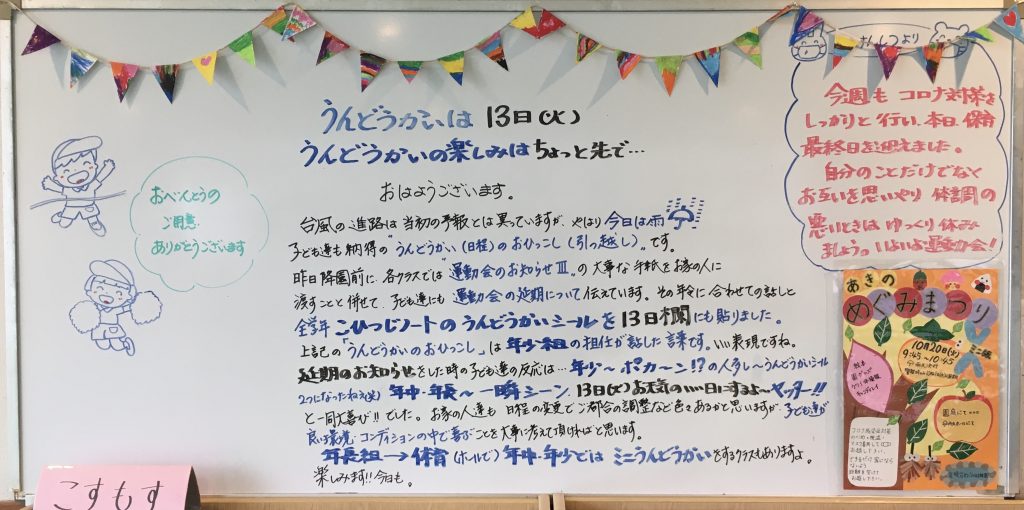 うんどうかいは 13日(火)
うんどうかいの楽しみは ちょっと先で…
おはようございます。
台風の進路は 当初の予報とは 異っていますが、やはり 今日は雨
子ども達も納得の "うんどうかい(日程)のおひっこし(引っ越し)"です。
昨日 降園前に 各クラスでは "運動会のお知らせⅢ"の 大事な手紙をお家の人に
渡すことと併せて 子ども達にも 運動会の延期について伝えています。その年令に合わせての話しと
全学年 こひつじノートの うんどうかいシールを 13日欄にも貼りました。
上記の「うんどうかいのおひっこし」は 年少組の担任が話した言葉です。いい表現ですね。
延期のお知らせをした時の子ども達の反応は… 年少〜ポカ〜ン!?の人多し〜うんどうかいシール
2つになったねぇ(笑) 年中・年長〜一瞬シーン 13日(火)お天気のいい日にするよ〜ヤッター!!
と一同大喜び!!でした。お家の人達も 日程の変更でご都合の調整など色々あるかと思いますが、子ども達が
良い環境・コンディションの中で喜びことを大事に考えて頂ければと思います。
年長組→体育(ホールで) 年中・年少では ミニうんどうかいをするクラスもありますよ。
楽しみます!!今日も。
おべんとうの
ご用意
ありがとうございます
こすもす
ほけんしつより
今週も コロナ対策を
しっかりと行い、本日、保育
最終日を迎えました。
自分のことだけでなく
お互いを思いやり 体調の
悪いときは ゆっくり休み
ましょう。いよいよ運動会!
あきの
めぐみまつり
ミニ版
10月20日(火)
9:45〜10:45